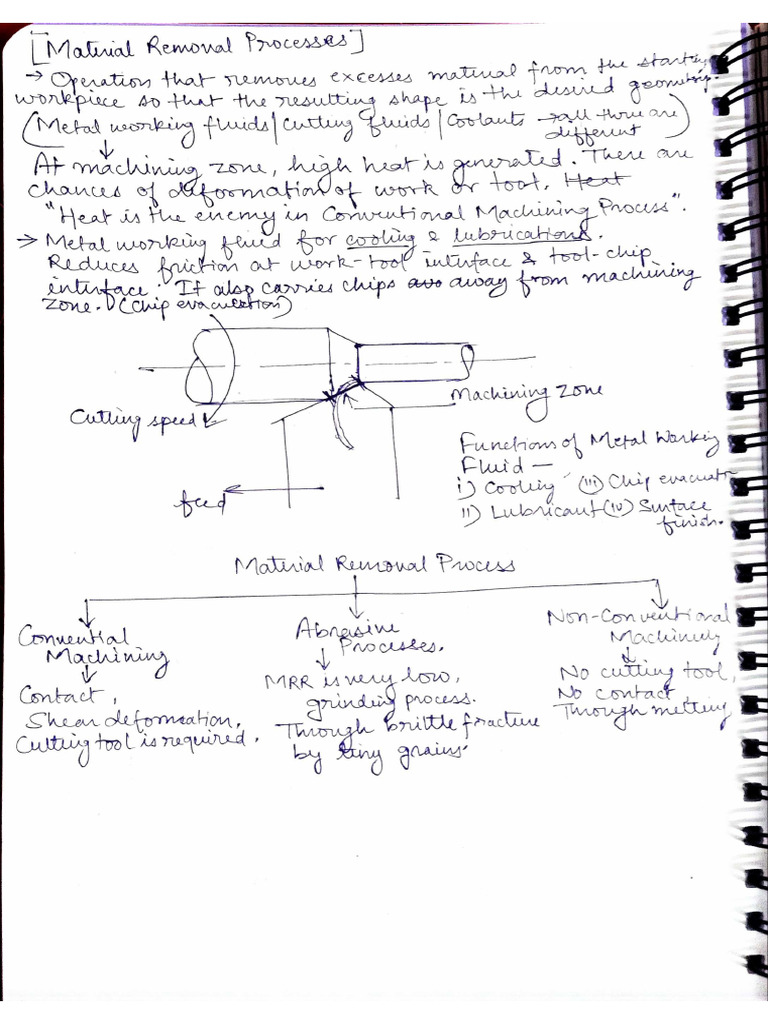 [Material Removal Processes]
→ Operation that removes excesses material from the starting
workpiece so that the resulting shape is the desired geometry.
(Metal working fluids/Cutting fluids/Coolants → all three are
different)
At machining zone, high heat is generated. There are
chances of deformation of work or tool. Heat
"Heat is the enemy in Conventional Machining Process".
→ Metal working fluid for cooling & lubrications.
Reduces friction at work-tool interface & tool-chip
interface. It also carries chips away from machining
zone. (Chip evacuation)
Machining Zone
Cutting speed
Functions of Metal Working
Fluid —
i) Cooling (iii) Chip evacuation
ii) Lubricant (iv) Surface
finish.
feed
Material Removal Process
Convential
Machining
Contact,
Shear deformation,
Cutting tool is required.
Abrasive
Processes.
MRR is very low,
grinding process.
Through brittle fracture
by tiny grains.
Non-Conventional
Machinely
No cutting tool,
No contact
Through melting